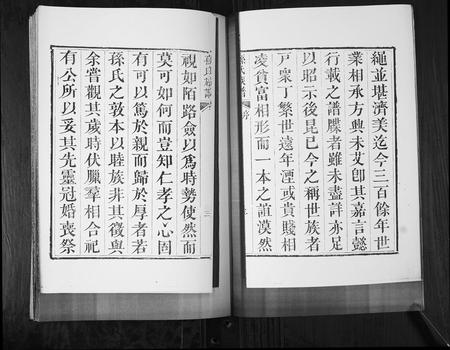 繩並堪濟美迄今三百餘年世
業相承方興未艾卽其嘉言懿
行載之譜牒者雖未盡詳亦足
以昭示後昆已今之稱世族者
戸衆丁繁世遠年湮或貴賤相
凌貧富相形而一本之誼漠然
孫氏族譜
序
三
視如陌路僉以爲時勢使然而
莫可如何而豈知仁孝之心固
有可以篤於親而歸於厚者若
孫氏之敦本以睦族非其徵與
余嘗觀其歲時伏臘羣相合祀
有公所以妥其先靈冠婚喪祭